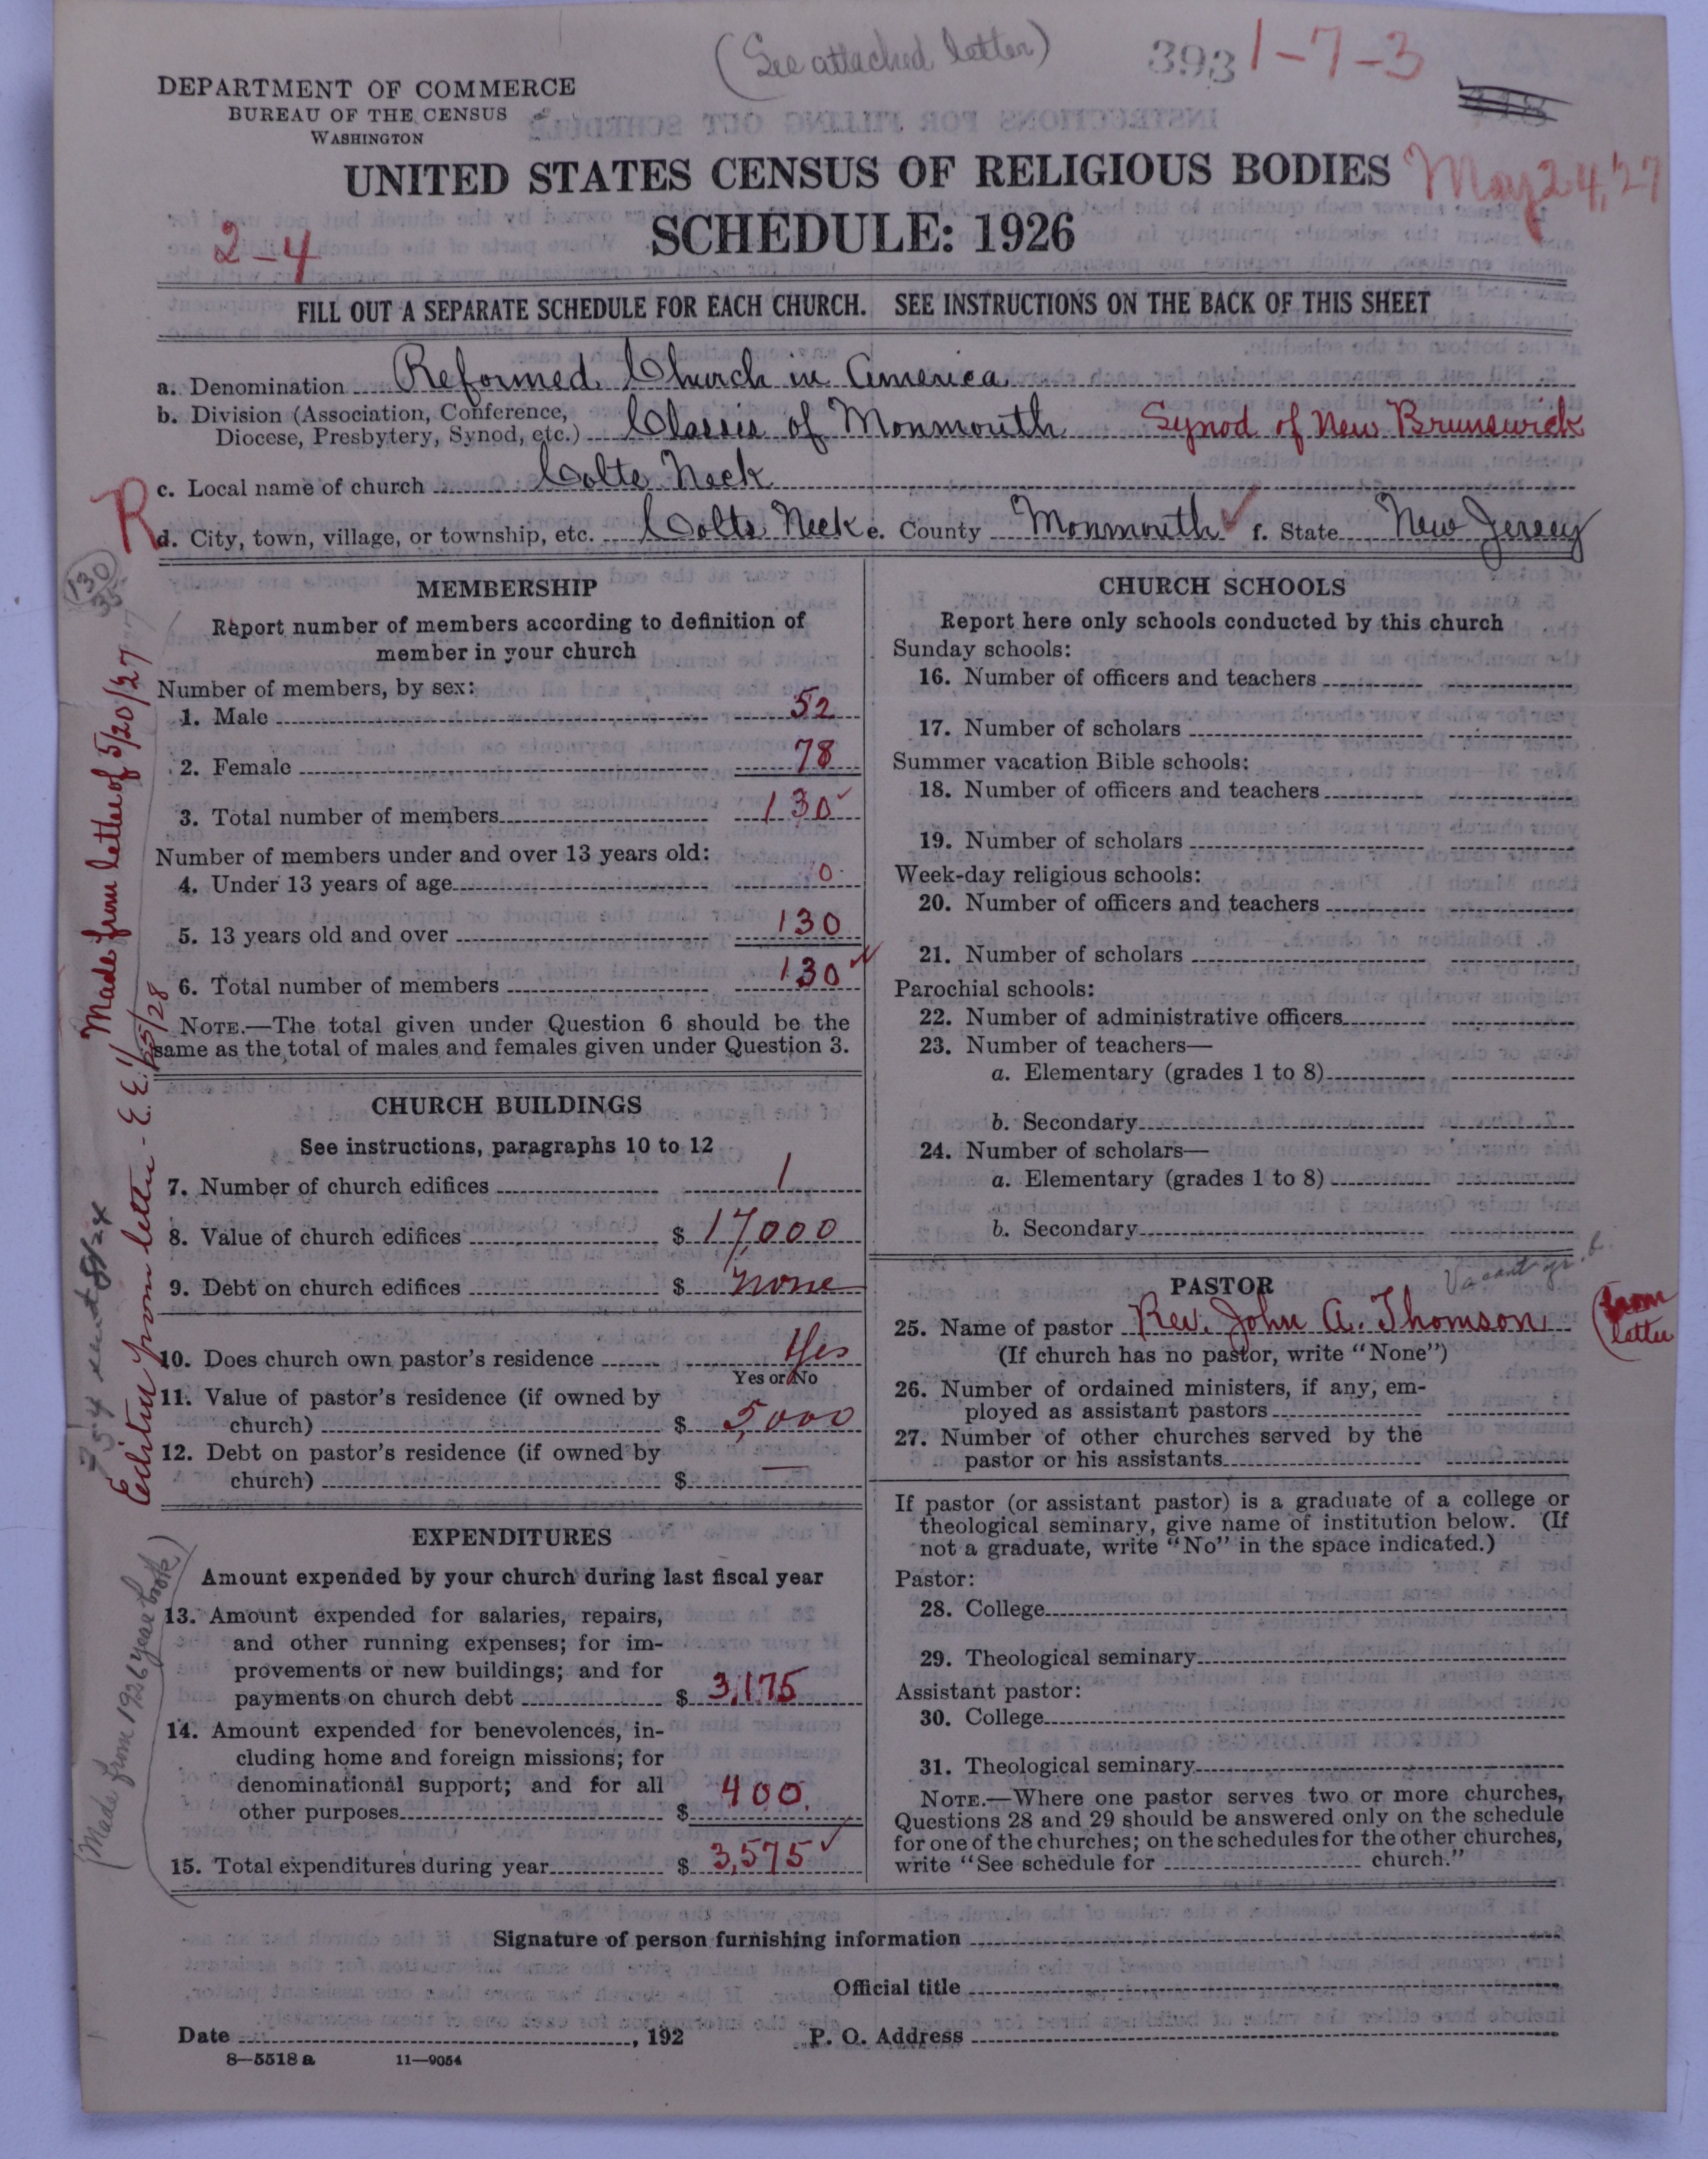 (See attached letter)
393
1-7-3
DEPARTMENT OF COMMERCE
BUREAU OF THE CENSUS
WASHINGTON
UNITED STATES CENSUS OF RELIGIOUS BODIES
May 24, '27
2-4
SCHEDULE: 1926
FILL OUT A SEPARATE SCHEDULE FOR EACH CHURCH. SEE INSTRUCTIONS ON THE BACK OF THIS SHEET
a. Denomination Reformed Church in America
b. Division (Association, Conference,
Diocese, Presbytery, Synod, etc.) Classis of Monmouth Synod of New Brunswick
c. Local name of church Colts Neck
R
d. City, town, village, or township, etc. Colts Neck e. County Monmouth f. State New Jersey
130
35
MEMBERSHIP
Report number of members according to definition of
member in your church
Number of members, by sex:
1. Male 52
2. Female 78
3. Total number of members 130
Number of members under and over 13 years old:
4. Under 13 years of age 0
5. 13 years old and over 130
6. Total number of members 130
NOTE.—The total given under Question 6 should be the
same as the total of males and females given under Question 3.
CHURCH BUILDINGS
See instructions, paragraphs 10 to 12
7. Number of church edifices 1
8. Value of church edifices $ 17,000
9. Debt on church edifices $ none
10. Does church own pastor's residence Yes
Yes or No
11. Value of pastor's residence (if owned by
church) $ 5,000
12. Debt on pastor's residence (if owned by
church) $ —
EXPENDITURES
Amount expended by your church during last fiscal year
13. Amount expended for salaries, repairs,
and other running expenses; for im-
provements or new buildings; and for
payments on church debt $ 3,175
14. Amount expended for benevolences, in-
cluding home and foreign missions; for
denominational support; and for all
other purposes $ 400.
15. Total expenditures during year $ 3,575
Made from letter of 5/20/27
Edited from letter - E.E. 1/25/28
(Made from 1926 year book)
CHURCH SCHOOLS
Report here only schools conducted by this church
Sunday schools:
16. Number of officers and teachers
17. Number of scholars
Summer vacation Bible schools:
18. Number of officers and teachers
19. Number of scholars
Week-day religious schools:
20. Number of officers and teachers
21. Number of scholars
Parochial schools:
22. Number of administrative officers
23. Number of teachers—
a. Elementary (grades 1 to 8)
b. Secondary
24. Number of scholars—
a. Elementary (grades 1 to 8)
b. Secondary
PASTOR
Vacant
25. Name of pastor Rev. John A. Thomson
(from
letter
(If church has no pastor, write "None")
26. Number of ordained ministers, if any, em-
ployed as assistant pastors
27. Number of other churches served by the
pastor or his assistants
If pastor (or assistant pastor) is a graduate of a college or
theological seminary, give name of institution below. (If
not a graduate, write "No" in the space indicated.)
Pastor:
28. College
29. Theological seminary
Assistant pastor:
30. College
31. Theological seminary
NOTE.—Where one pastor serves two or more churches,
Questions 28 and 29 should be answered only on the schedule
for one of the churches; on the schedules for the other churches,
write "See schedule for church."
Signature of person furnishing information
Official title
Date , 192 P. O. Address
8—5518 a 11—9054